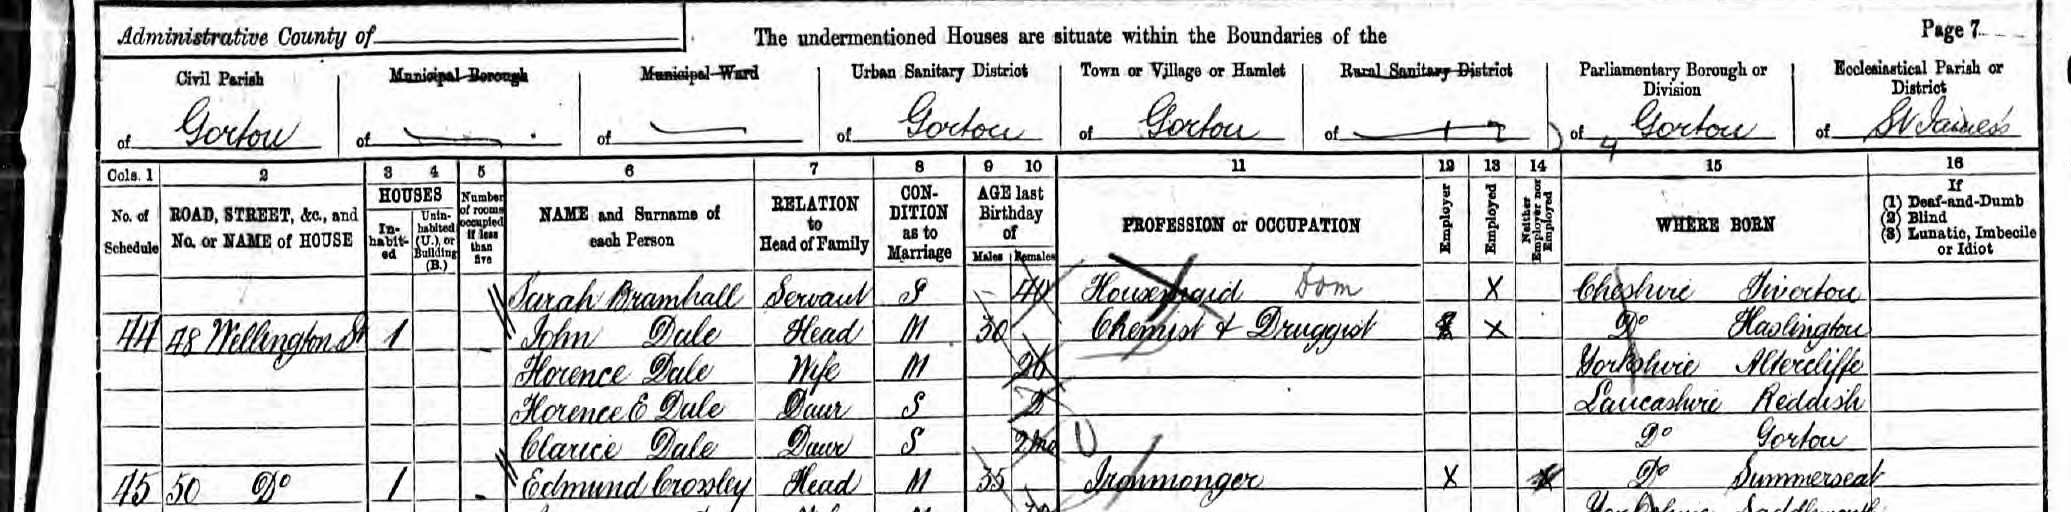 Administrative County of
The undermentioned Houses are situate within the Boundaries of the
Page 7
Civil Parish
of Gorton
Municipal Borough
of
Municipal Ward
of
Urban Sanitary District
of Gorton
Town or Village or Hamlet
of Gorton
Rural Sanitary District
of
Parliamentary Borough or
Division
of Gorton
Ecclesiastical Parish or
District
of St James's
Cols. 1 2 3 4 5 6 7 8 9 10 11 12 13 14 15 16
No. of
Schedule
ROAD, STREET, &c., and
No. or NAME of HOUSE
HOUSES
In-
habit-
ed
Unin-
habited
(U.), or
Building
(B.)
Number
of rooms
occupied
if less
than
five
NAME and Surname of
each Person
RELATION
to
Head of Family
CON-
DITION
as to
Marriage
AGE last
Birthday
of
Males Females
PROFESSION or OCCUPATION
Employer
Employed
Neither
Employer nor
Employed
WHERE BORN
If
(1) Deaf-and-Dumb
(2) Blind
(3) Lunatic, Imbecile
or Idiot
Sarah Bramhall Servant S 40 Housemaid Dom X Cheshire Tiverton
44 48 Wellington St 1 John Dale Head M 30 Chemist & Druggist X Do Haslington
Florence Dale Wife M 26 Yorkshire Attercliffe
Florence E Dale Daur S 2 Lancashire Reddish
Clarice Dale Daur S 2 mo Do Gorton
45 50 Do 1 Edmund Crossley Head M 35 Ironmonger X Do Summerseat